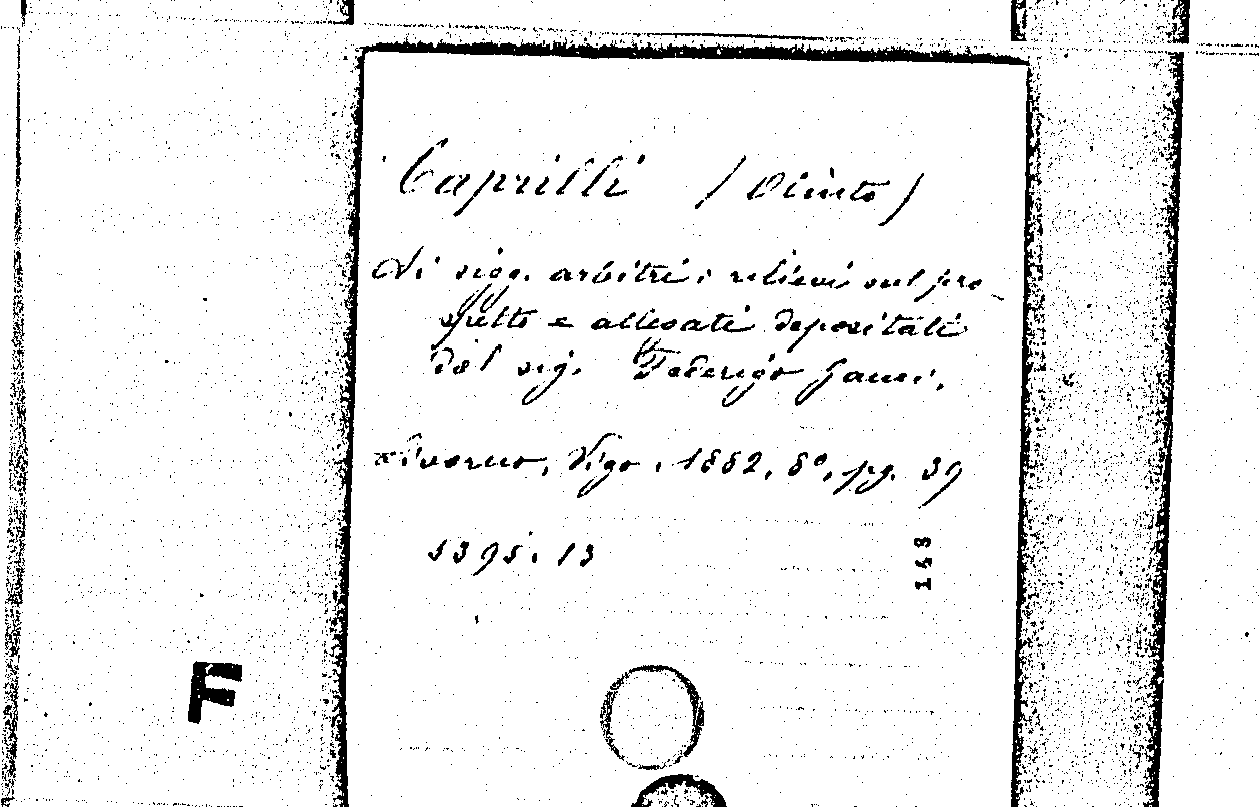 Caprilli (Olinto)
Ai sigg. arbitri: rilievi sul pro-
spetto e allegati depositati
dal sig. Federigo
Livorno, Vigo, 1882, 8°, pg. 39
5395.13
143
F